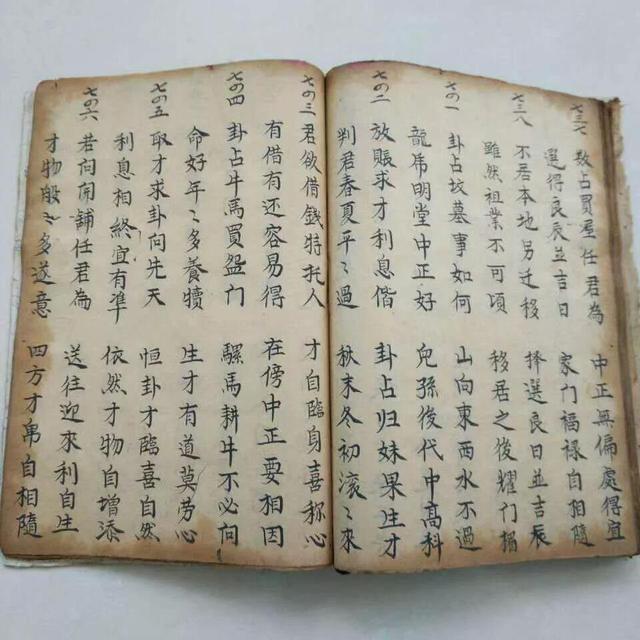 七三七 数占買產任君為 中正無偏處得宜
選得良辰並吉日 家门福禄自相隨
七三八 不居本地另迁移 择選良日並吉辰
雖然祖業不可頃 移居之後耀门楣
七の一 卦占坟墓事如何 山向東西水不過
龍虎明堂中正好 兒孫後代中高科
七の二 放賬求才利息偕 卦占归妹果生才
判君春夏平〻過 秋末冬初滚〻來
七の三 君欲借錢特托人 才自臨身喜称心
有借有还容易得 在傍中正要相因
七の四 卦占牛馬買盈门 騾馬耕牛不必问
命好年〻多養犢 生才有道莫劳心
七の五 取才求卦问先天 恒卦才臨喜自然
利息相終宜有准 依然才物自增添
七の六 若问開舖任君為 送往迎來利自生
才物般〻多遂意 四方才帛自相隨